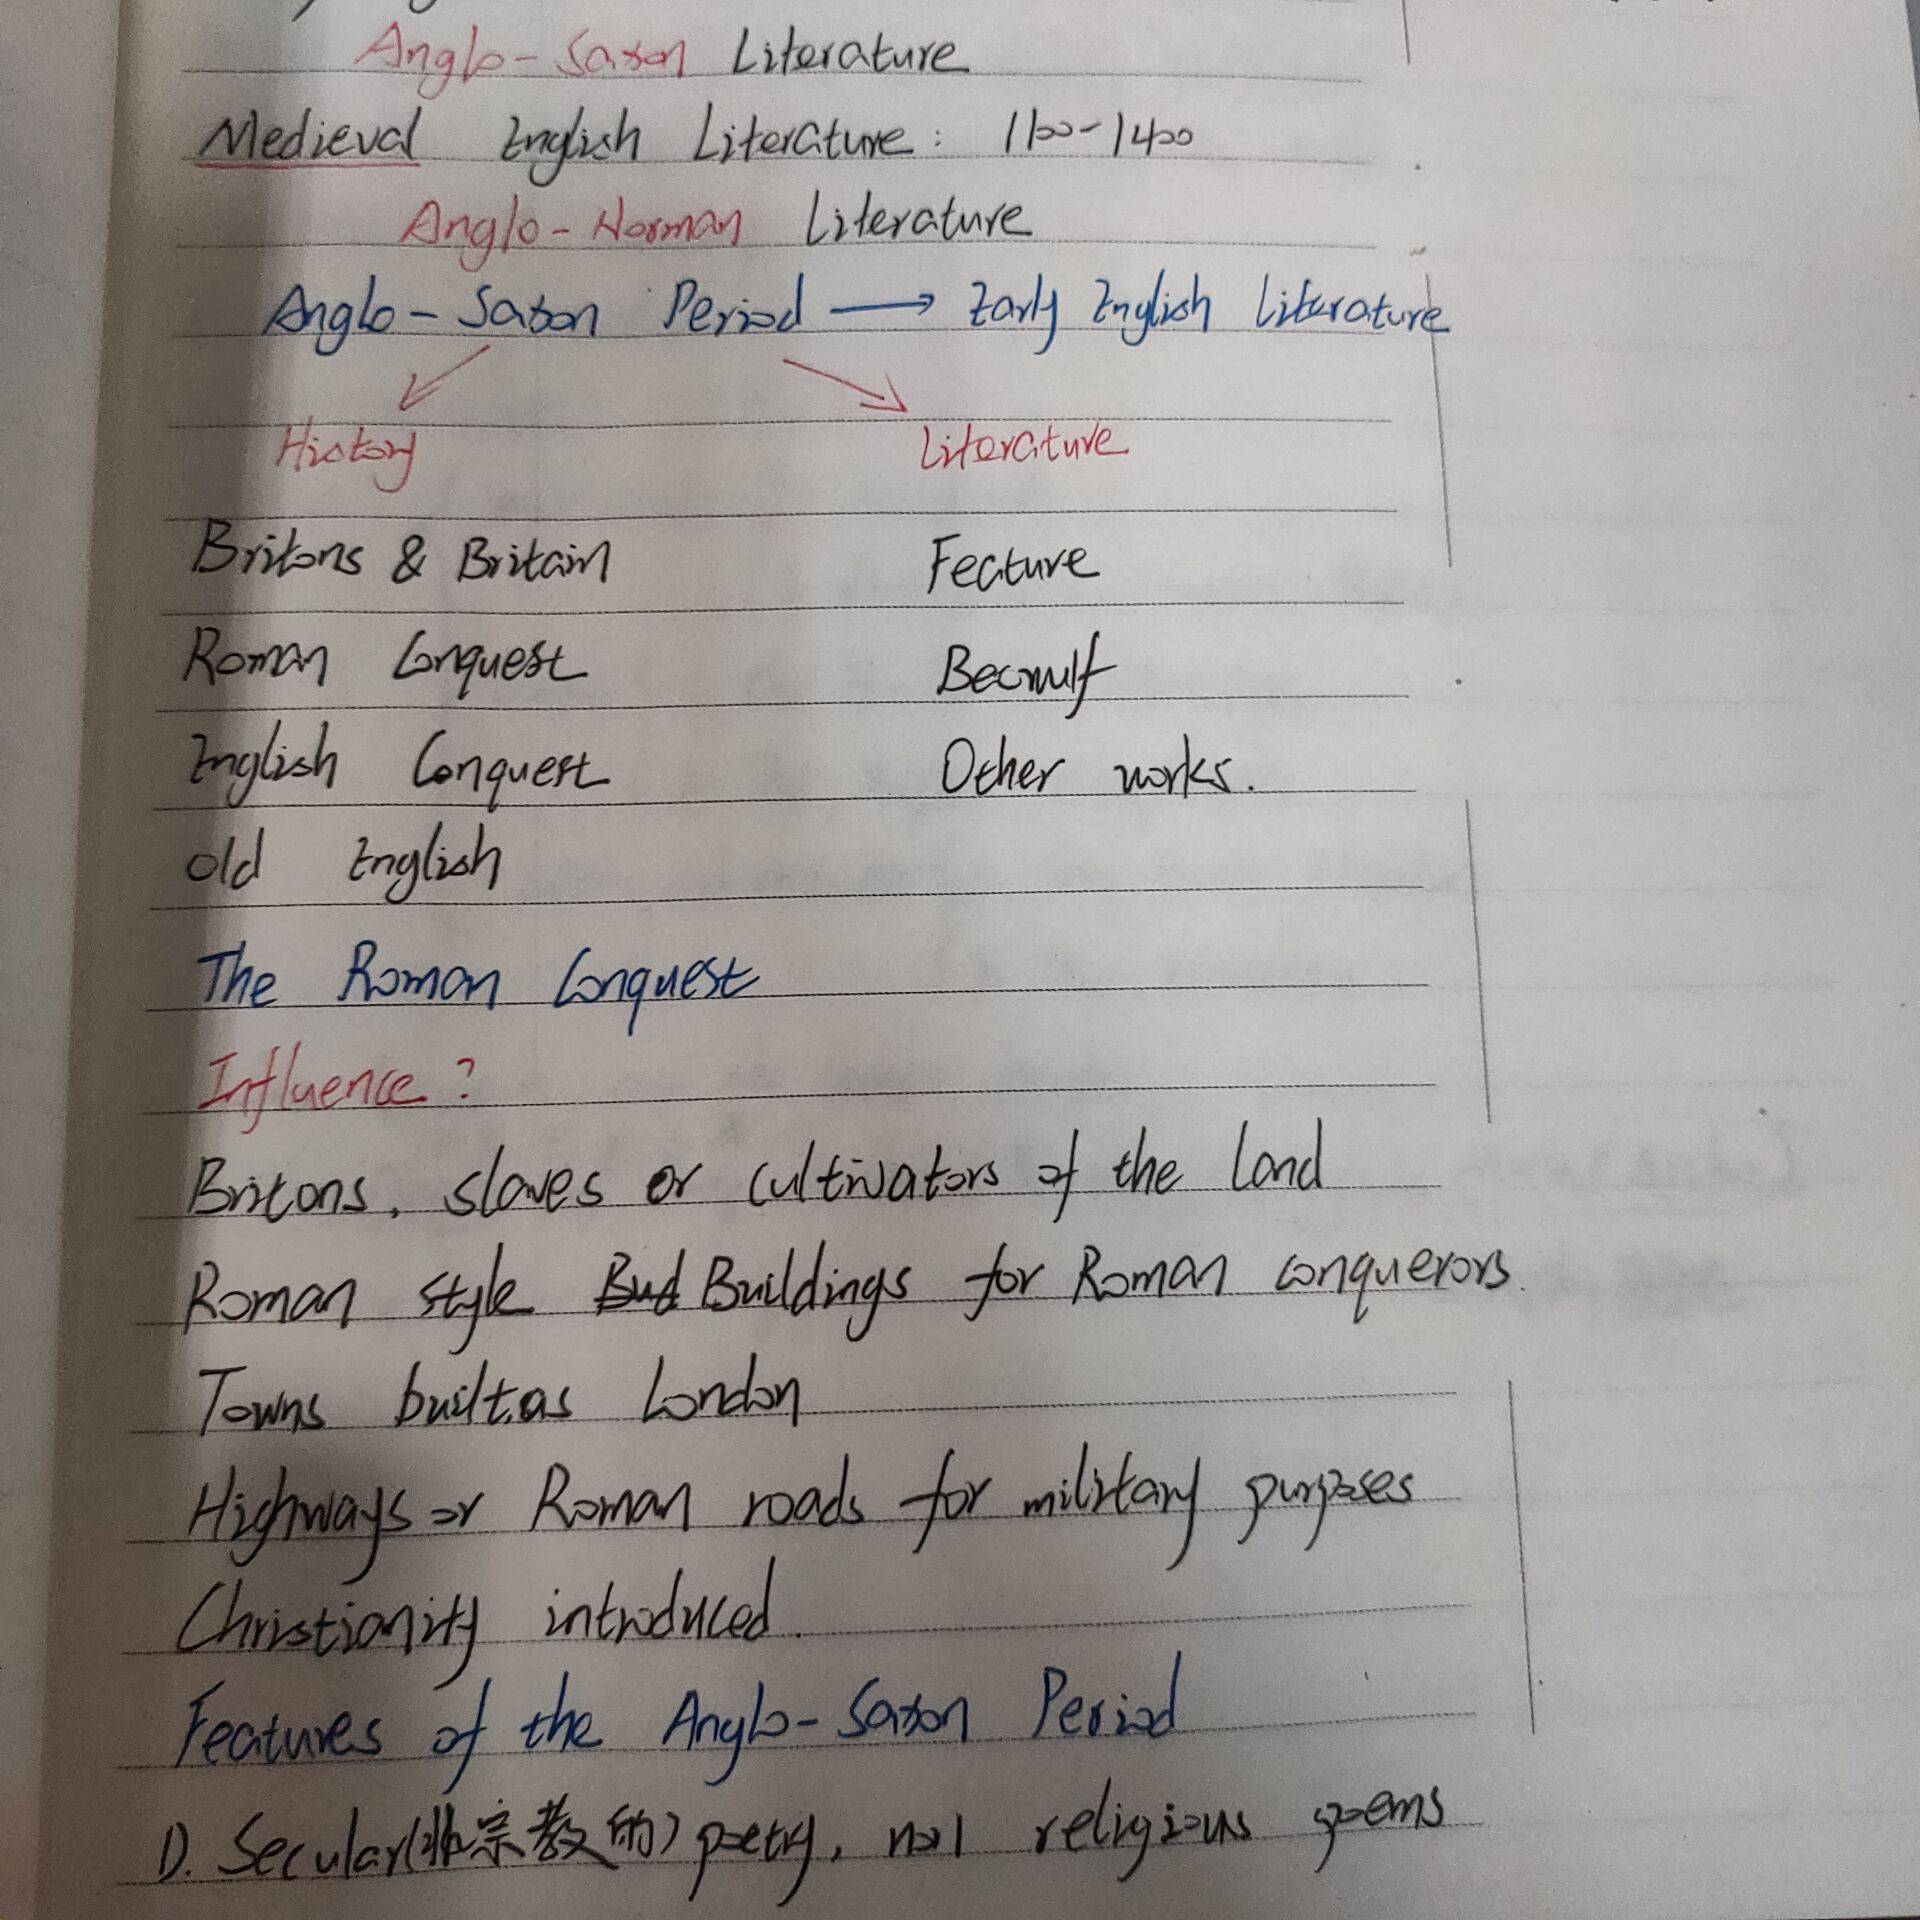 Anglo-Saxon Literature
Medieval English Literature: 1100-1400
Anglo-Norman Literature
Anglo-Saxon Period → Early English Literature
History Literature
Britons & Britain Feature
Roman Conquest Beowulf
English Conquest Other works.
Old English
The Roman Conquest
Influence?
Britons, slaves or cultivators of the land
Roman style Buildings for Roman conquerors.
Towns built.as London
Highways or Roman roads for military purposes
Christianity introduced.
Features of the Anglo-Saxon Period
D. Secular(非宗教的) poetry, religious poems